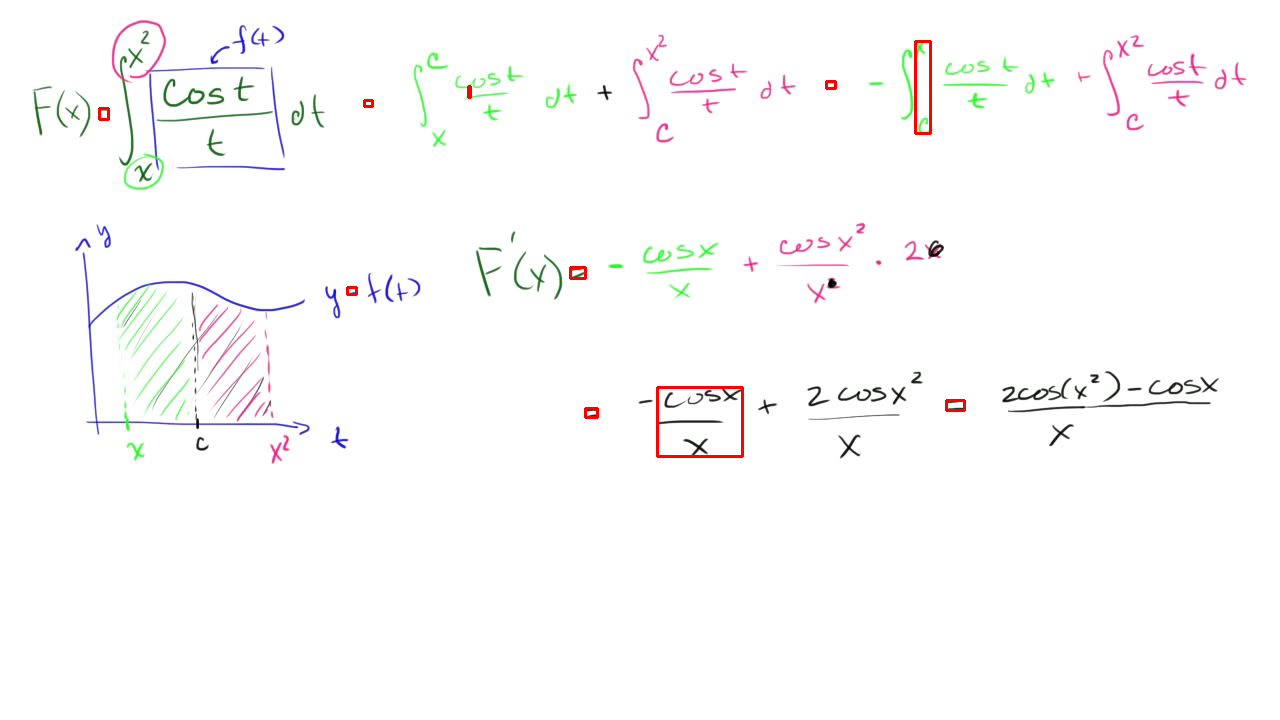 F(x) = ∫_x^{x²} cos t / t dt = ∫_x^c cos t / t dt + ∫_c^{x²} cos t / t dt = - ∫_c^x cos t / t dt + ∫_c^{x²} cos t / t dt
f(t)
y
F'(x) = - cos x / x + cos x² / x · 2
y = f(t)
= - cos x / x + 2 cos x² / x = 2cos(x²) - cos x / x
x c x² t